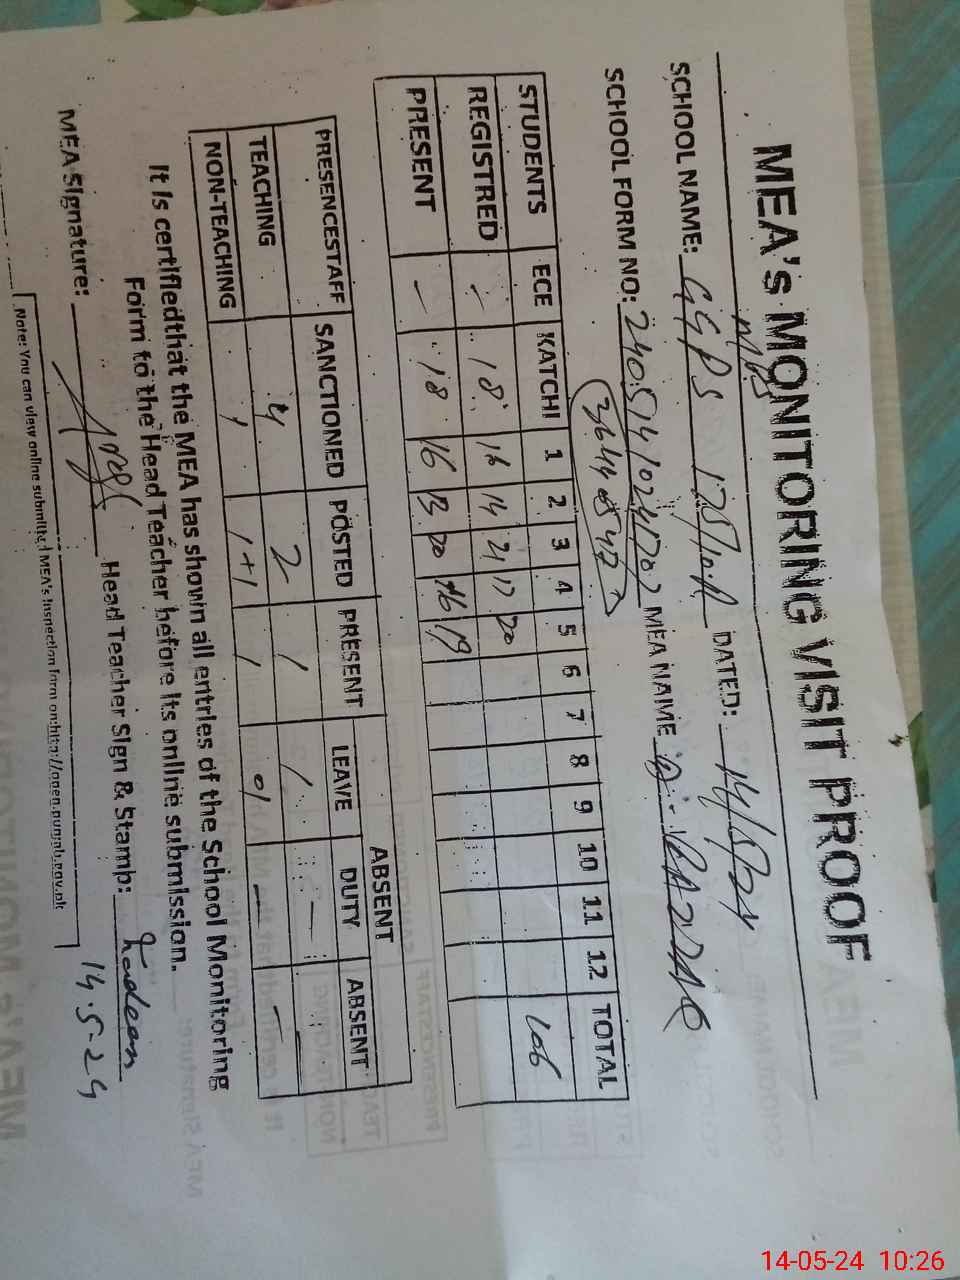 MEA's MONITORING VISIT PROOF
MPS
SCHOOL NAME: GGPS 125/10.R DATED: 14/5/24
SCHOOL FORM NO: MEA NAME
STUDENTS ECE KATCHI 1 2 3 4 5 6 7 8 9 10 11 12 TOTAL
REGISTRED - 18 16 14 21 17 20 106
PRESENT - 18 16 13 20 16 19
ABSENT
PRESENCESTAFF SANCTIONED POSTED PRESENT LEAVE DUTY ABSENT
TEACHING 4 2 1 1 - -
NON-TEACHING 1 1+1 1 01 - -
It Is certifiedthat the MEA has shown all entries of the School Monitoring
Form to the Head Teacher before Its online submission.
MEA Signature: Head Teacher Sign & Stamp:
14.5.24
Note: You can view online submitted MEA's Inspection form on:http://open.punjab.gov.pk
14-05-24 10:26